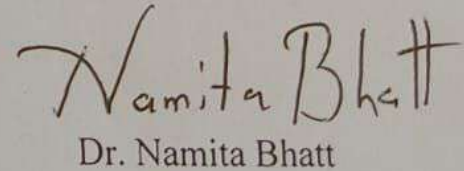 Namita Bhatt
Dr. Namita Bhatt